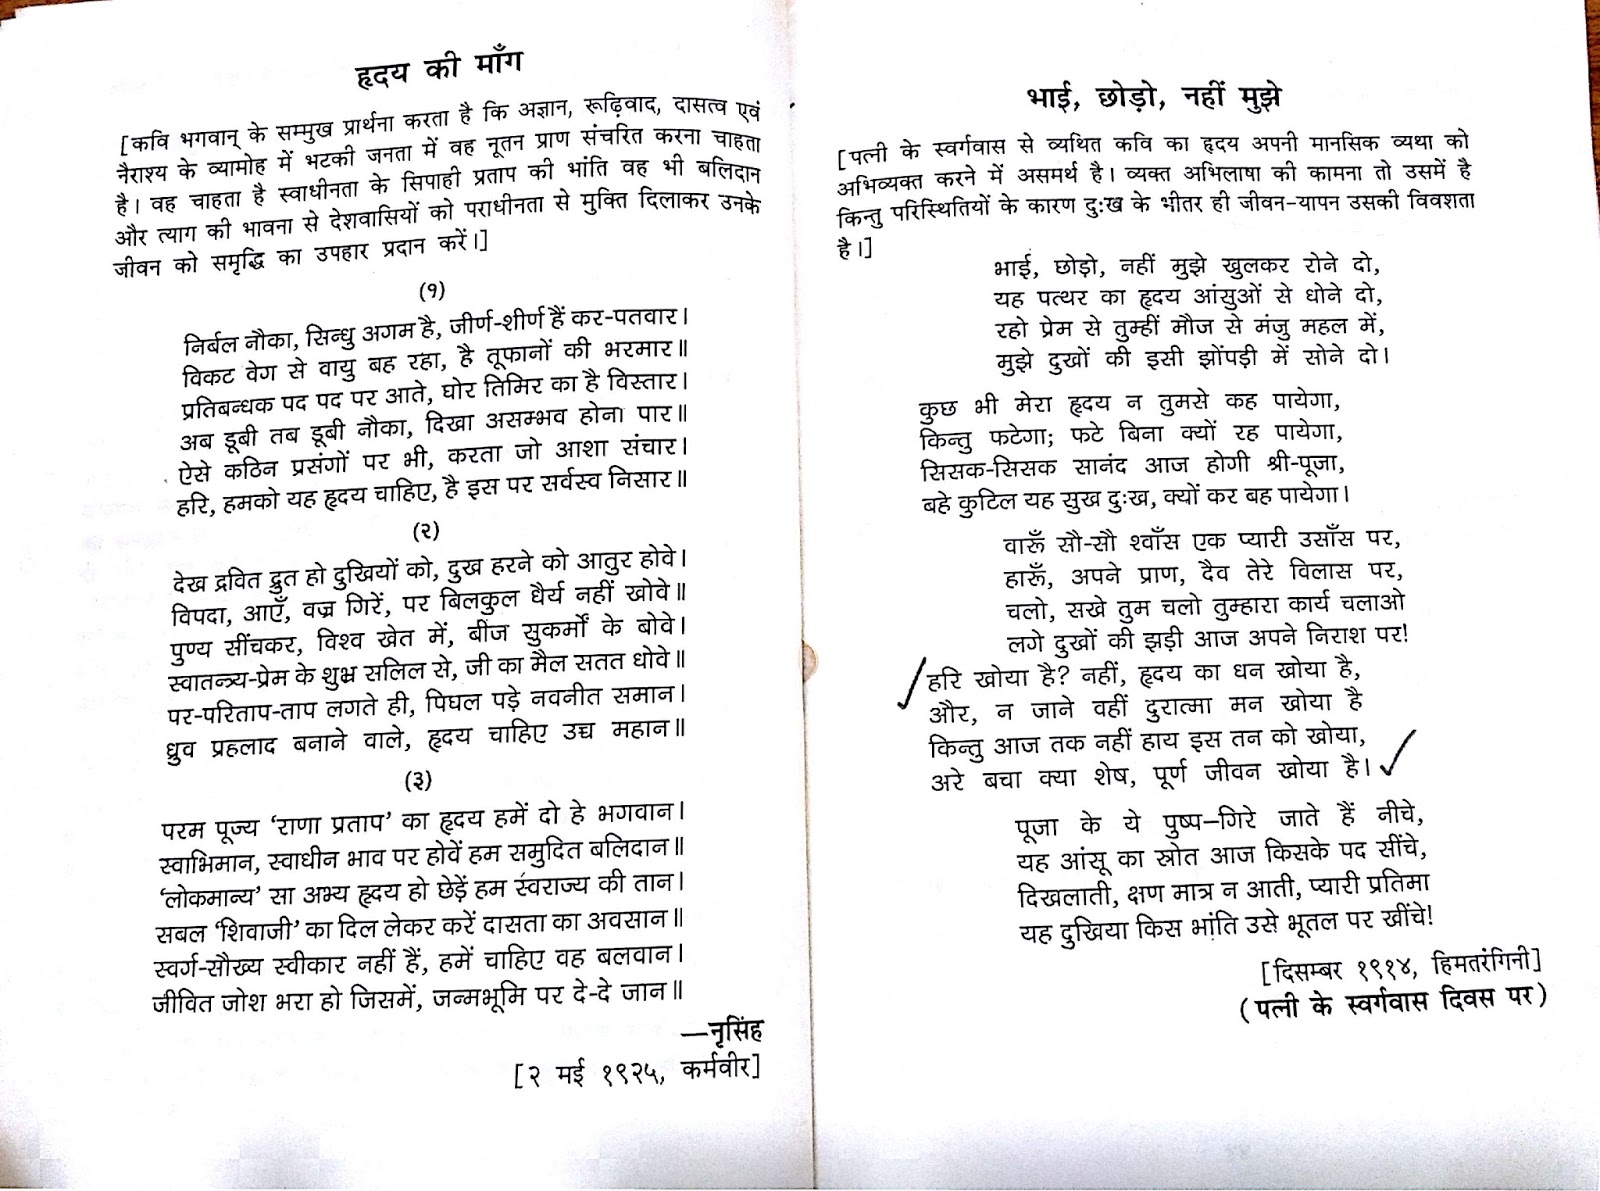 हृदय की माँग
[कवि भगवान् के सम्मुख प्रार्थना करता है कि अज्ञान, रूढ़िवाद, दासत्व एवं
नैराश्य के व्यामोह में भटकी जनता में वह नूतन प्राण संचरित करना चाहता
है। वह चाहता है स्वाधीनता के सिपाही प्रताप की भांति वह भी बलिदान
और त्याग की भावना से देशवासियों को पराधीनता से मुक्ति दिलाकर उनके
जीवन को समृद्धि का उपहार प्रदान करें।]
(१)
निर्बल नौका, सिन्धु अगम है, जीर्ण-शीर्ण हैं कर-पतवार।
विकट वेग से वायु बह रहा, है तूफानों की भरमार॥
प्रतिबन्धक पद पद पर आते, घोर तिमिर का है विस्तार।
अब डूबी तब डूबी नौका, दिखा असम्भव होना पार॥
ऐसे कठिन प्रसंगों पर भी, करता जो आशा संचार।
हरि, हमको यह हृदय चाहिए, है इस पर सर्वस्व निसार॥
(२)
देख द्रवित द्रुत हो दुखियों को, दुख हरने को आतुर होवे।
विपदा, आएँ, वज्र गिरें, पर बिलकुल धैर्य नहीं खोवे॥
पुण्य सींचकर, विश्व खेत में, बीज सुकर्मों के बोवे।
स्वातन्त्र्य-प्रेम के शुभ्र सलिल से, जी का मैल सतत धोवे॥
पर-परिताप-ताप लगते ही, पिघल पड़े नवनीत समान।
ध्रुव प्रहलाद बनाने वाले, हृदय चाहिए उच्च महान॥
(३)
परम पूज्य ‘राणा प्रताप’ का हृदय हमें दो हे भगवान।
स्वाभिमान, स्वाधीन भाव पर होवें हम समुदित बलिदान॥
‘लोकमान्य’ सा अभ्य हृदय हो छेड़ें हम स्वराज्य की तान।
सबल ‘शिवाजी’ का दिल लेकर करें दासता का अवसान॥
स्वर्ग-सौख्य स्वीकार नहीं हैं, हमें चाहिए वह बलवान।
जीवित जोश भरा हो जिसमें, जन्मभूमि पर दे-दे जान॥
—नृसिंह
[२ मई १९२५, कर्मवीर]
भाई, छोड़ो, नहीं मुझे
[पत्नी के स्वर्गवास से व्यथित कवि का हृदय अपनी मानसिक व्यथा को
अभिव्यक्त करने में असमर्थ है। व्यक्त अभिलाषा की कामना तो उसमें है
किन्तु परिस्थितियों के कारण दुःख के भीतर ही जीवन-यापन उसकी विवशता
है।]
भाई, छोड़ो, नहीं मुझे खुलकर रोने दो,
यह पत्थर का हृदय आंसुओं से धोने दो,
रहो प्रेम से तुम्हीं मौज से मंजु महल में,
मुझे दुखों की इसी झोंपड़ी में सोने दो।
कुछ भी मेरा हृदय न तुमसे कह पायेगा,
किन्तु फटेगा; फटे बिना क्यों रह पायेगा,
सिसक-सिसक सानंद आज होगी श्री-पूजा,
बहे कुटिल यह सुख दुःख, क्यों कर बह पायेगा।
वारूँ सौ-सौ श्वाँस एक प्यारी उसाँस पर,
हारूँ, अपने प्राण, दैव तेरे विलास पर,
चलो, सखे तुम चलो तुम्हारा कार्य चलाओ
लगे दुखों की झड़ी आज अपने निराश पर!
हरि खोया है? नहीं, हृदय का धन खोया है,
और, न जाने वहीं दुरात्मा मन खोया है
किन्तु आज तक नहीं हाय इस तन को खोया,
अरे बचा क्या शेष, पूर्ण जीवन खोया है।
पूजा के ये पुष्प—गिरे जाते हैं नीचे,
यह आंसू का स्रोत आज किसके पद सींचे,
दिखलाती, क्षण मात्र न आती, प्यारी प्रतिमा
यह दुखिया किस भांति उसे भूतल पर खींचे!
[दिसम्बर १९१४, हिमतरंगिनी]
(पत्नी के स्वर्गवास दिवस पर)